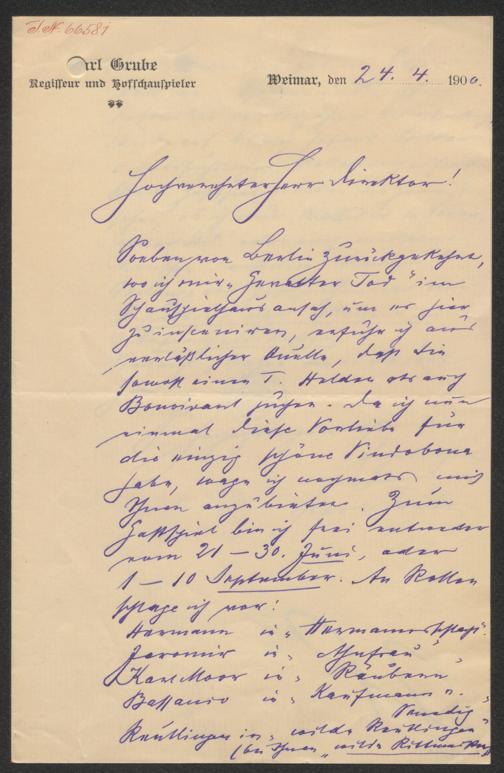 J.N. 66581
Carl Grube
Regisseur und Hofschauspieler
Weimar, den 24. 4. 1900.
Hochverehrter Herr Direktor!
Soeben von Berlin zurückgekehrt,
wo ich mir „Gevatter Tod" im
Schauspielhaus ansah, um es hier
zu insceniren, erfuhr ich aus
verläßlicher Quelle, daß Sie
sowohl einen I. Helden als auch
Bonvivant suchen. Da ich nun
einmal diese Vorliebe für
die einzig schöne Vindobona
habe, wage ich nochmals mich
Ihnen anzubieten. Zum
Gastspiel bin ich frei entweder
vom 21 – 30. Juni, oder
1 – 10 September. An Rollen
schlage ich vor:
Hermann in „Hermannschlacht"
Jaromir in „Ahnfrau"
Karl Moor in „Räubern"
Bassanio in „Kaufmann v.
Venedig"
Reutlingen in „wilde Reutlingen"
(bei Ihnen „wilde Rittmeister"